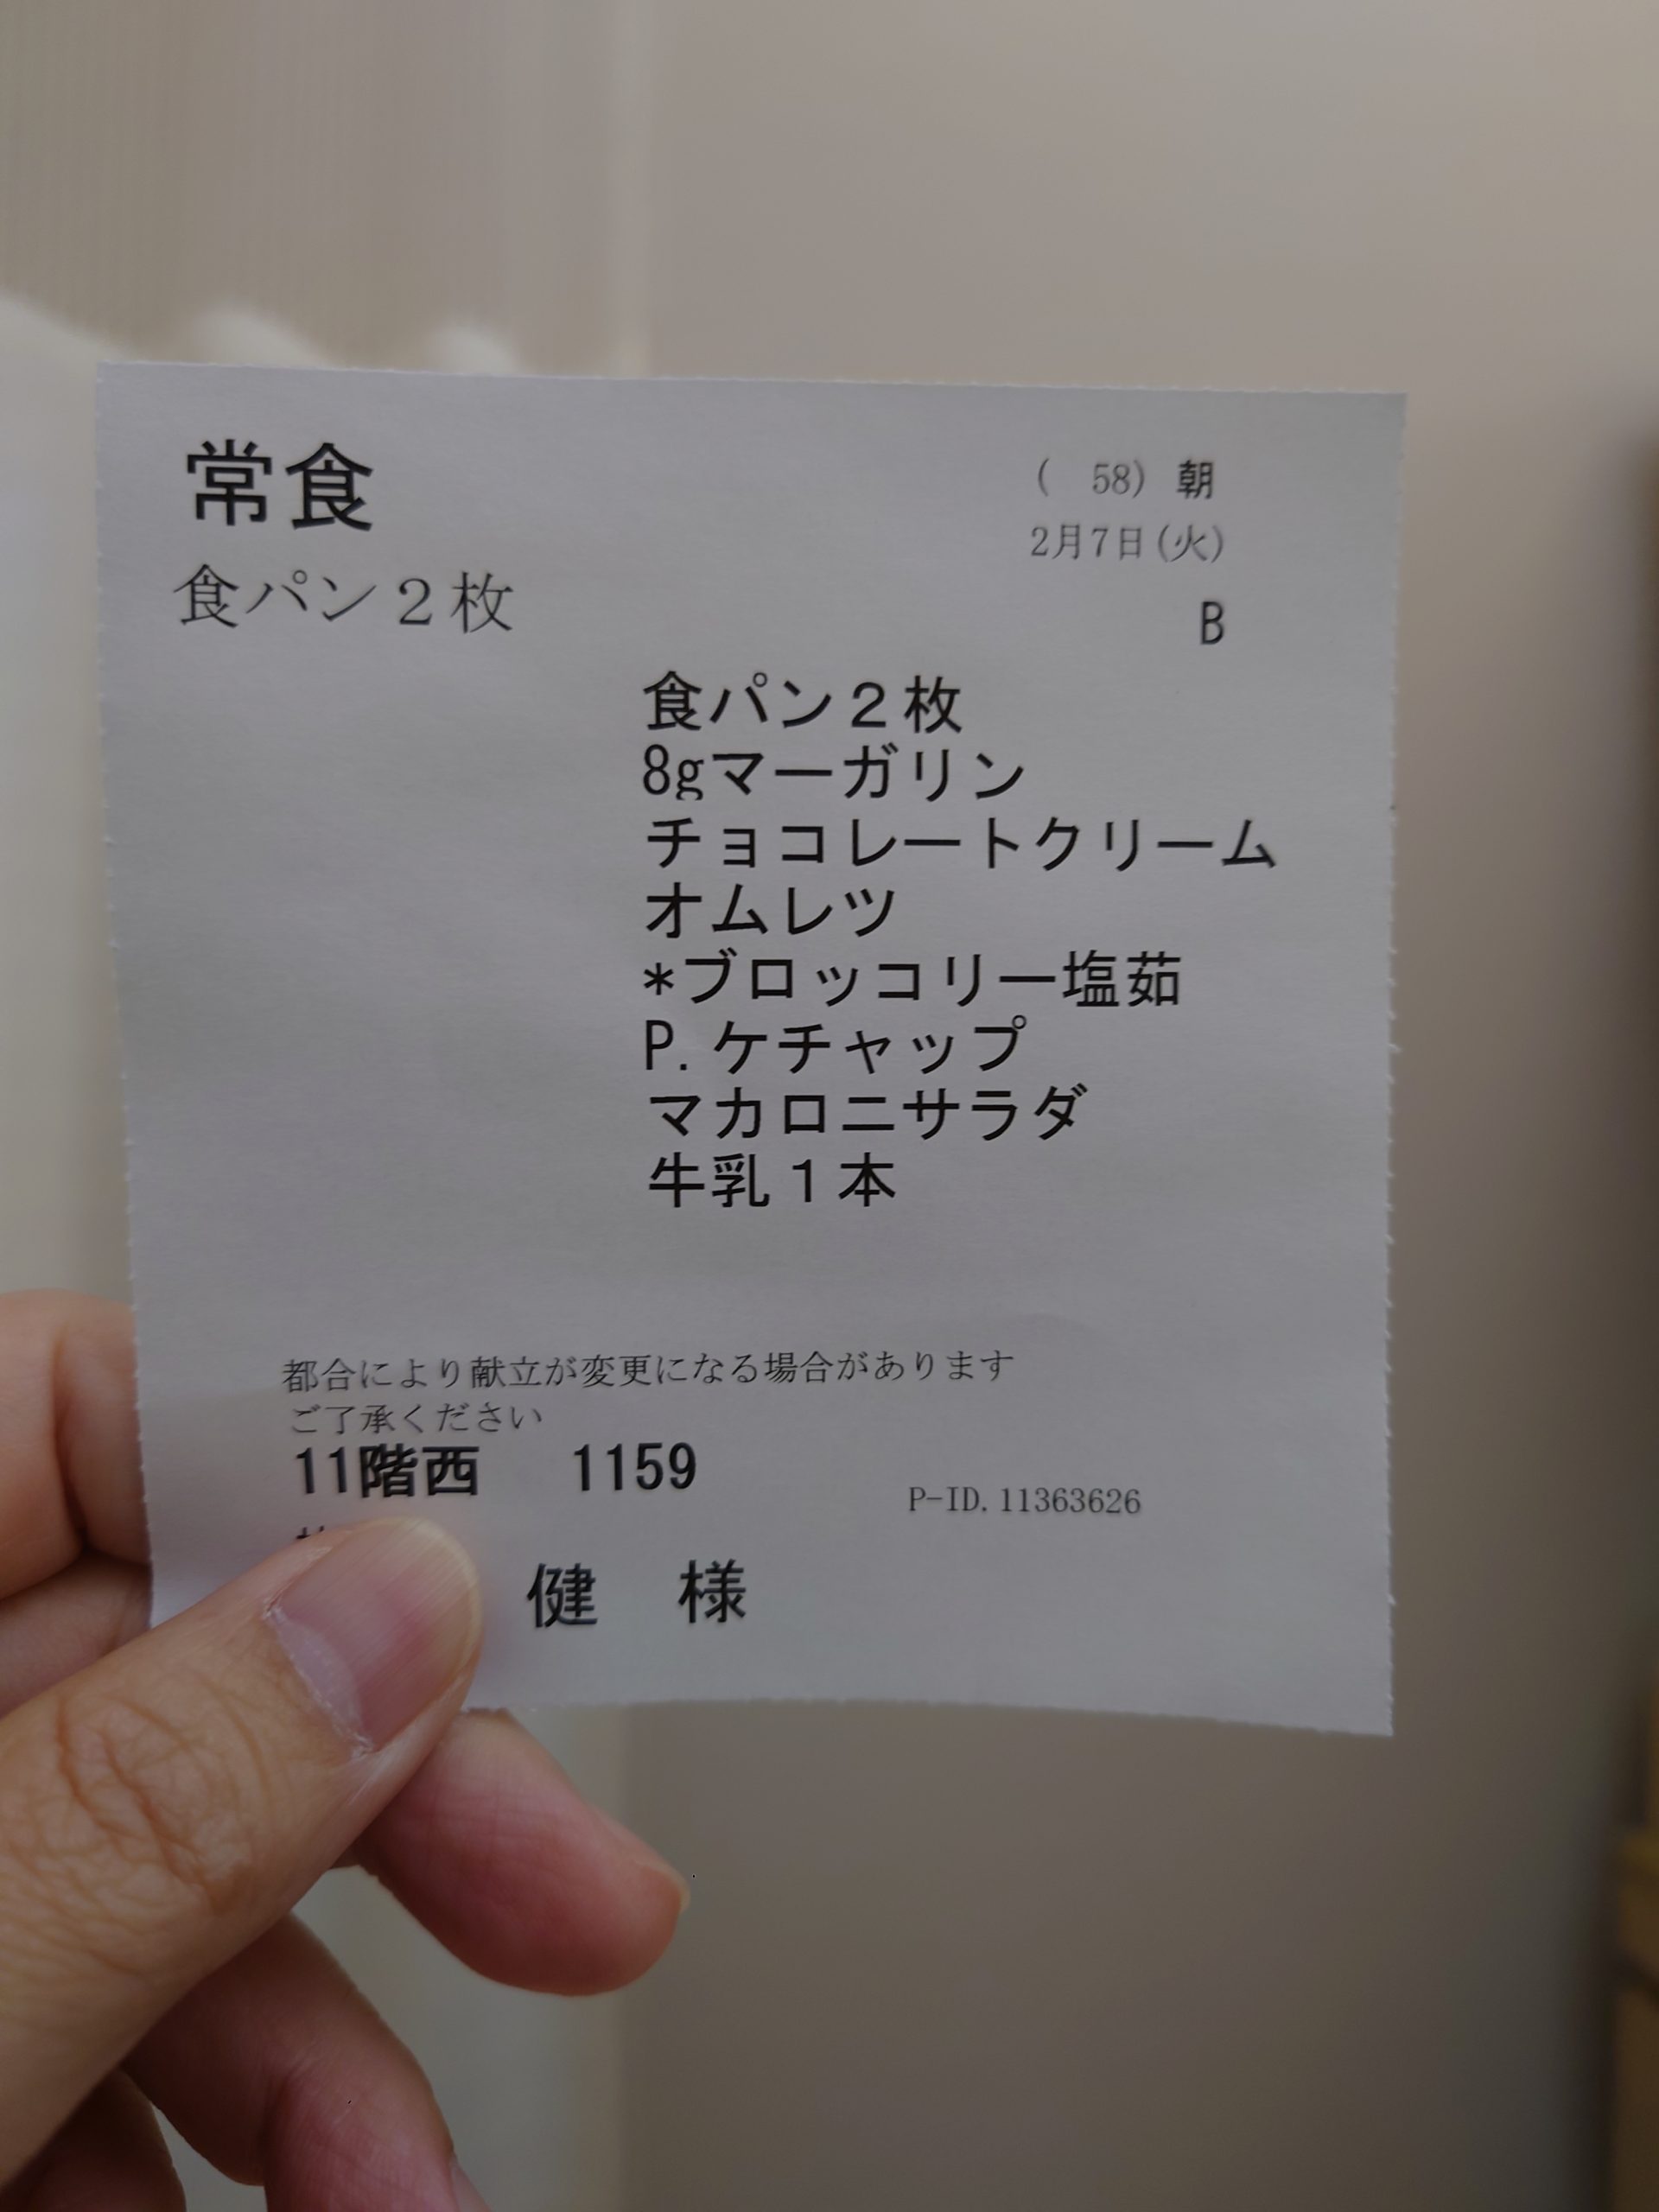 常食
(　58) 朝
2月7日(火)
食パン２枚
B
食パン２枚
8gマーガリン
チョコレートクリーム
オムレツ
*ブロッコリー塩茹
P.ケチャップ
マカロニサラダ
牛乳１本
都合により献立が変更になる場合があります
ご了承ください
11階西　1159
P-ID.11363626
健　様